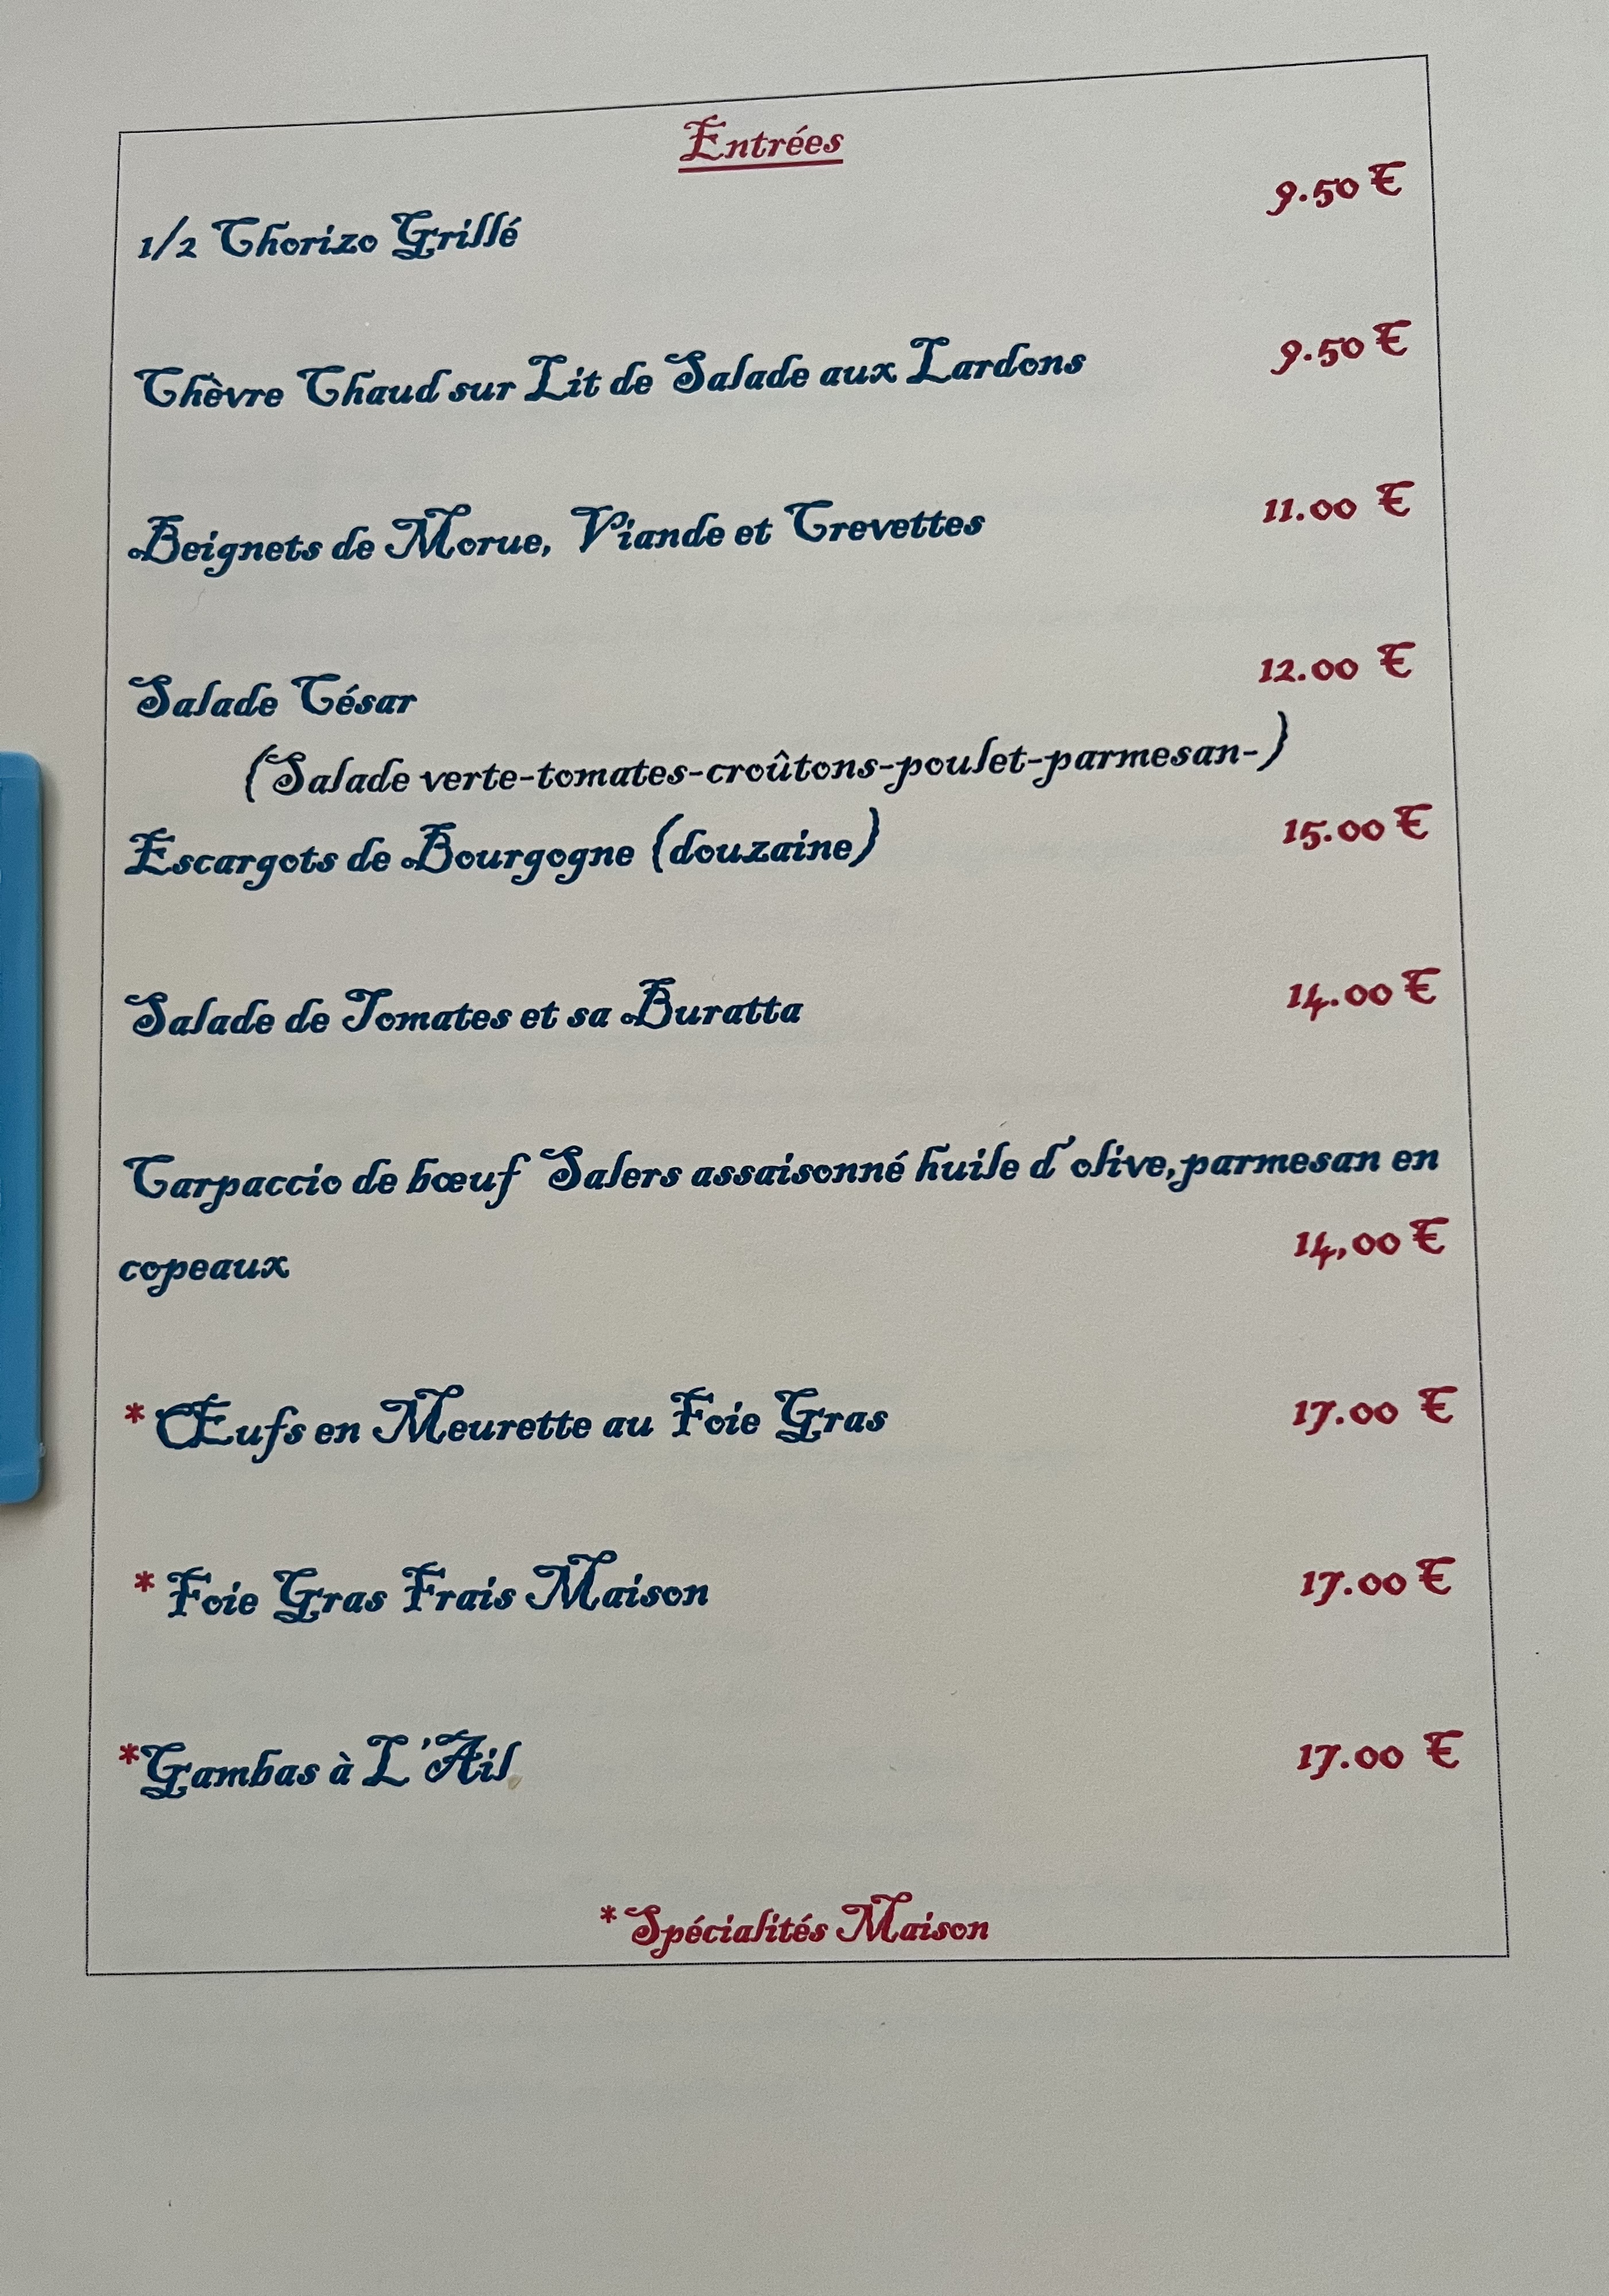 Entrées
1/2 Chorizo Grillé 9.50 €
Chèvre Chaud sur Lit de Salade aux Lardons 9.50 €
Beignets de Morue, Viande et Crevettes 11.00 €
Salade César 12.00 €
(Salade verte-tomates-croûtons-poulet-parmesan-)
Escargots de Bourgogne (douzaine) 15.00 €
Salade de Tomates et sa Buratta 14.00 €
Carpaccio de bœuf Salers assaisonné huile d'olive,parmesan en
copeaux 14,00 €
* Œufs en Meurette au Foie Gras 17.00 €
* Foie Gras Frais Maison 17.00 €
*Gambas à L'Ail 17.00 €
* Spécialités Maison